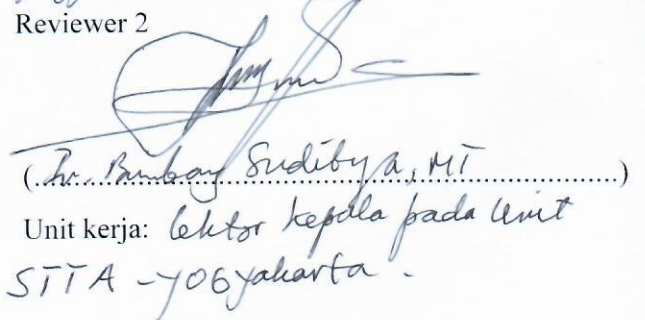 Reviewer 2
(Ir. Bambang Sudibya, MT)
Unit kerja: lektor kepala pada Unit
STTA - Yogyakarta.